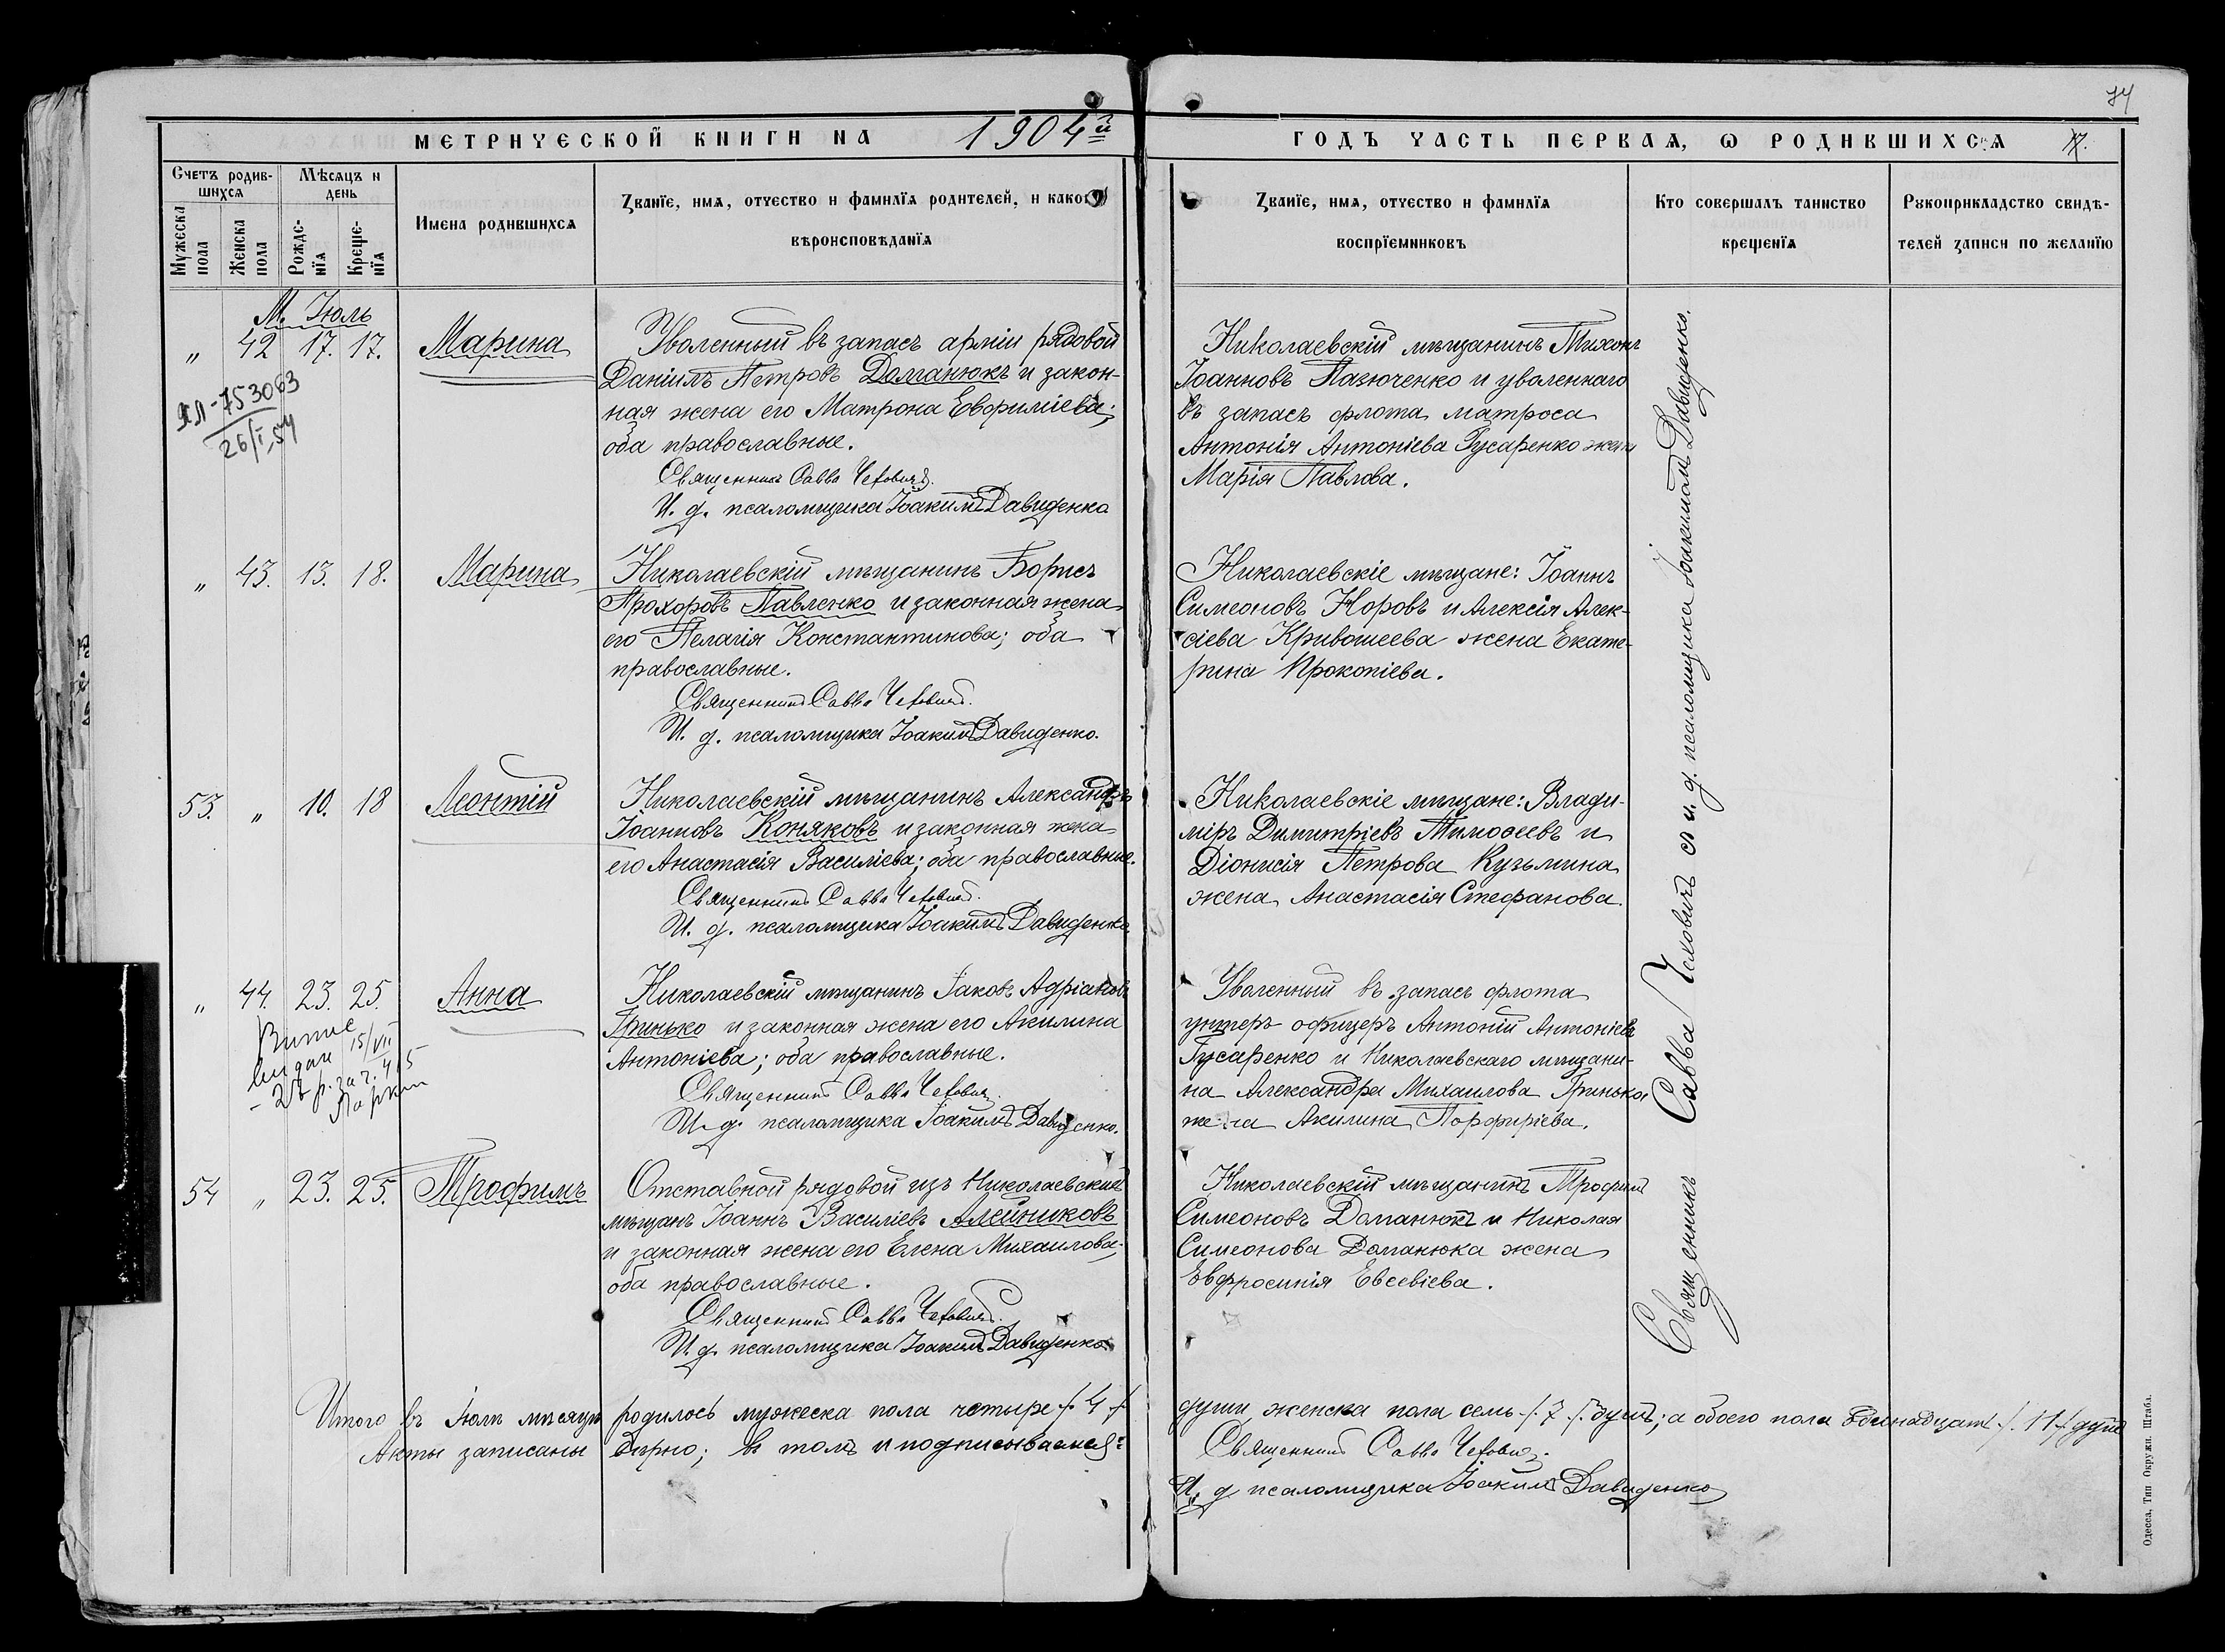 74
МЕТРИЧЕСКОЙ КНИГИ НА 1904й
ГОДЪ ЧАСТЬ ПЕРВАЯ, Ѡ РОДИВШИХСЯ 17.
Счетъ родившихся
Мужеска пола
Женска пола
Мѣсяцъ и день
Рожденїя
Крещенїя
Имена родившихся
Званїе, имя, отчество и фамилїя родителей, и какого
вѣроисповѣданїя
Званїе, имя, отчество и фамилїя
воспрїемниковъ
Кто совершалъ таинство
крещенїя
Рукоприкладство свидѣ-
телей записи по желанїю
М. Іюль
" 42 17. 17. Марина
ЯЛ-753063
26/I,54
Уволенный въ запасъ арміи рядовой
Даніилъ Петровъ Доманюкъ и закон-
ная жена его Матрона Евфиміева;
оба православные.
Священникъ Савва Чехович.
И. д. псаломщика Іоакимъ Давиденко
Николаевскій мѣщанинъ Тихонъ
Іоанновъ Пазюченко и уволеннаго
въ запасъ флота матроса
Антонія Антоніева Гусаренко жена
Марія Павлова.
" 43. 13. 18. Марина
Николаевскій мѣщанинъ Борисъ
Прохоровъ Павленко и законная жена
его Пелагія Константинова; оба
православные.
Священникъ Савва Чехович.
И. д. псаломщика Іоакимъ Давиденко.
Николаевскіе мѣщане: Іоаннъ
Симеоновъ Норовъ и Алексія Алек-
сіева Кривошеева жена Екате-
рина Прокопіева.
53. " 10. 18 Леонтій
Николаевскій мѣщанинъ Александръ
Іоанновъ Коняковъ и законная жена
его Анастасія Василіева; оба православные.
Священникъ Савва Чехович.
И. д. псаломщика Іоакимъ Давиденко.
Николаевскіе мѣщане: Влади-
міръ Димитріевъ Тимоѳеевъ и
Діонисія Петрова Кузьмина
жена Анастасія Стефанова.
" 44. 23. 25. Анна
15/VII
Николаевскій мѣщанинъ Іаковъ Адріановъ
Гринько и законная жена его Акилина
Антоніева; оба православные.
Священникъ Савва Чехович.
И. д. псаломщика Іоакимъ Давиденко.
Уволенный въ запасъ флота
унтеръ офицеръ Антоній Антоніевъ
Гусаренко и Николаевскаго мѣщани-
на Александра Михаилова Гринько
жена Акилина Порфиріева.
54 " 23. 25. Трофимъ
Отставной рядовой изъ Николаевскихъ
мѣщанъ Іоаннъ Василіевъ Алейниковъ
и законная жена его Елена Михаилова;
оба православные.
Священникъ Савва Чехович.
И. д. псаломщика Іоакимъ Давиденко
Николаевскій мѣщанинъ Трофимъ
Симеоновъ Доманюкъ и Николая
Симеонова Доманюка жена
Евфросинія Евсевіева.
Священникъ Савва Чеховичъ съ и. д. псаломщика Іоакимомъ Давиденко.
Итого въ Іюлѣ мѣсяцѣ родилось мужеска пола четыре /. 4 /. души, женска пола семь /. 7 /. душъ; а обоего пола одинадцать /. 11 /. душъ
Акты записаны вѣрно; въ томъ и подписываемся:
Священникъ Савва Чехович.
И. д. псаломщика Іоакимъ Давиденко
Одесса, Тип Окружн. Штаба.